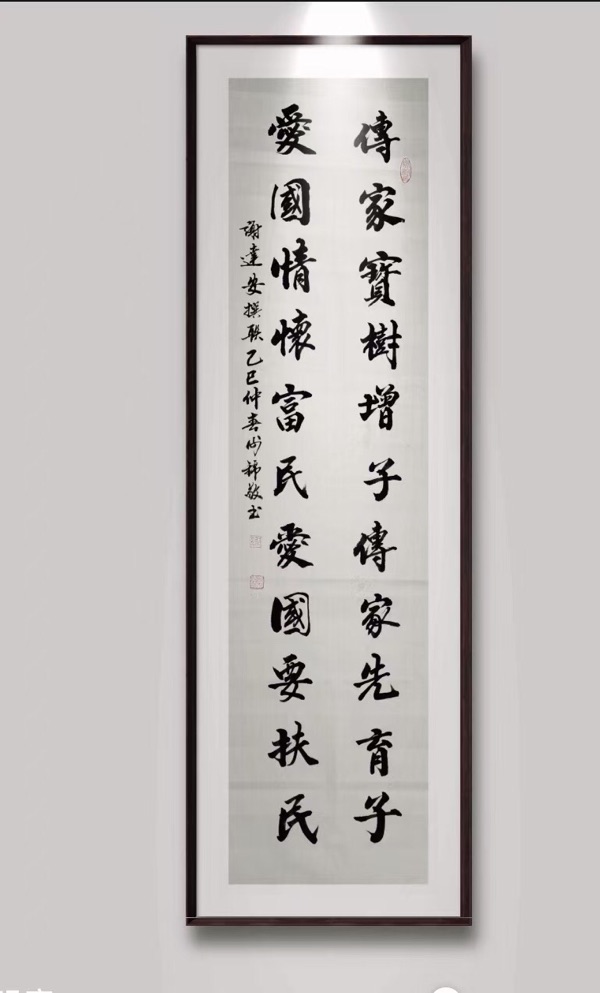 傳家寶樹增子傳家先育子
愛國情懷富民愛國要扶民
謝達安撰聯乙巳仲春師敬书